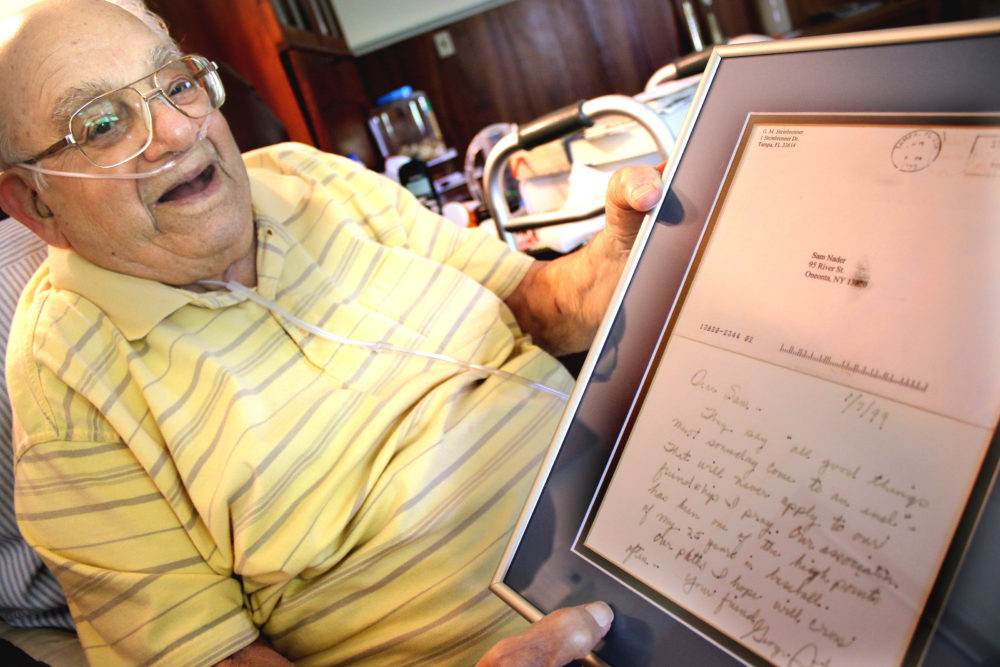 G. M. Steinbrenner
1 Steinbrenner Dr.
Tampa, FL 33614
TAMPA, FL
PM
Sam Nader
95 River St
Oneonta, NY
13820-2544 02
Dear Sam -
They say "all good things
must someday come to an end."
That will never apply to our
friendship I pray. Our association
has been one of the high points
of my 25 years in baseball.
Our paths I hope will cross
often. Your friend,
George